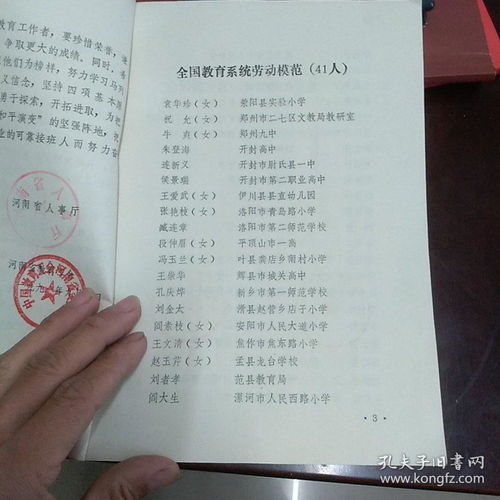 教育工作者，要珍惜荣誉，谦
争取更大的成绩。同时，希
他们为榜样，努力学习马列
义信念，坚持四项基本原
勇于探索，开拓进取，为把
和平演变”的坚强阵地，把
业的可靠接班人而努力奋
河南省人事厅
全国教育系统劳动模范（41人）
袁华珍（女） 荥阳县实验小学
祝允（女） 郑州市二七区文教局教研室
牛爽（女） 郑州九中
朱登海 开封高中
连新义 开封市尉氏县一中
侯景瑞 开封市第二职业高中
王爱武（女） 伊川县县直幼儿园
张艳枝（女） 洛阳市青岛路小学
臧连章 洛阳市第二师范学校
段仲眉（女） 平顶山市一高
冯玉兰（女） 叶县龚店乡南村小学
王泉华 辉县市城关高中
孔庆烨 新乡市第一师范学校
刘金太 滑县赵营乡店子小学
阎素枝（女） 安阳市人民大道小学
王文清（女） 焦作市焦东路小学
赵玉芹（女） 孟县龙台学校
刘者孝 范县教育局
阎大生 漯河市人民西路小学
·3·
孔夫子旧书网
www.kongfz.com